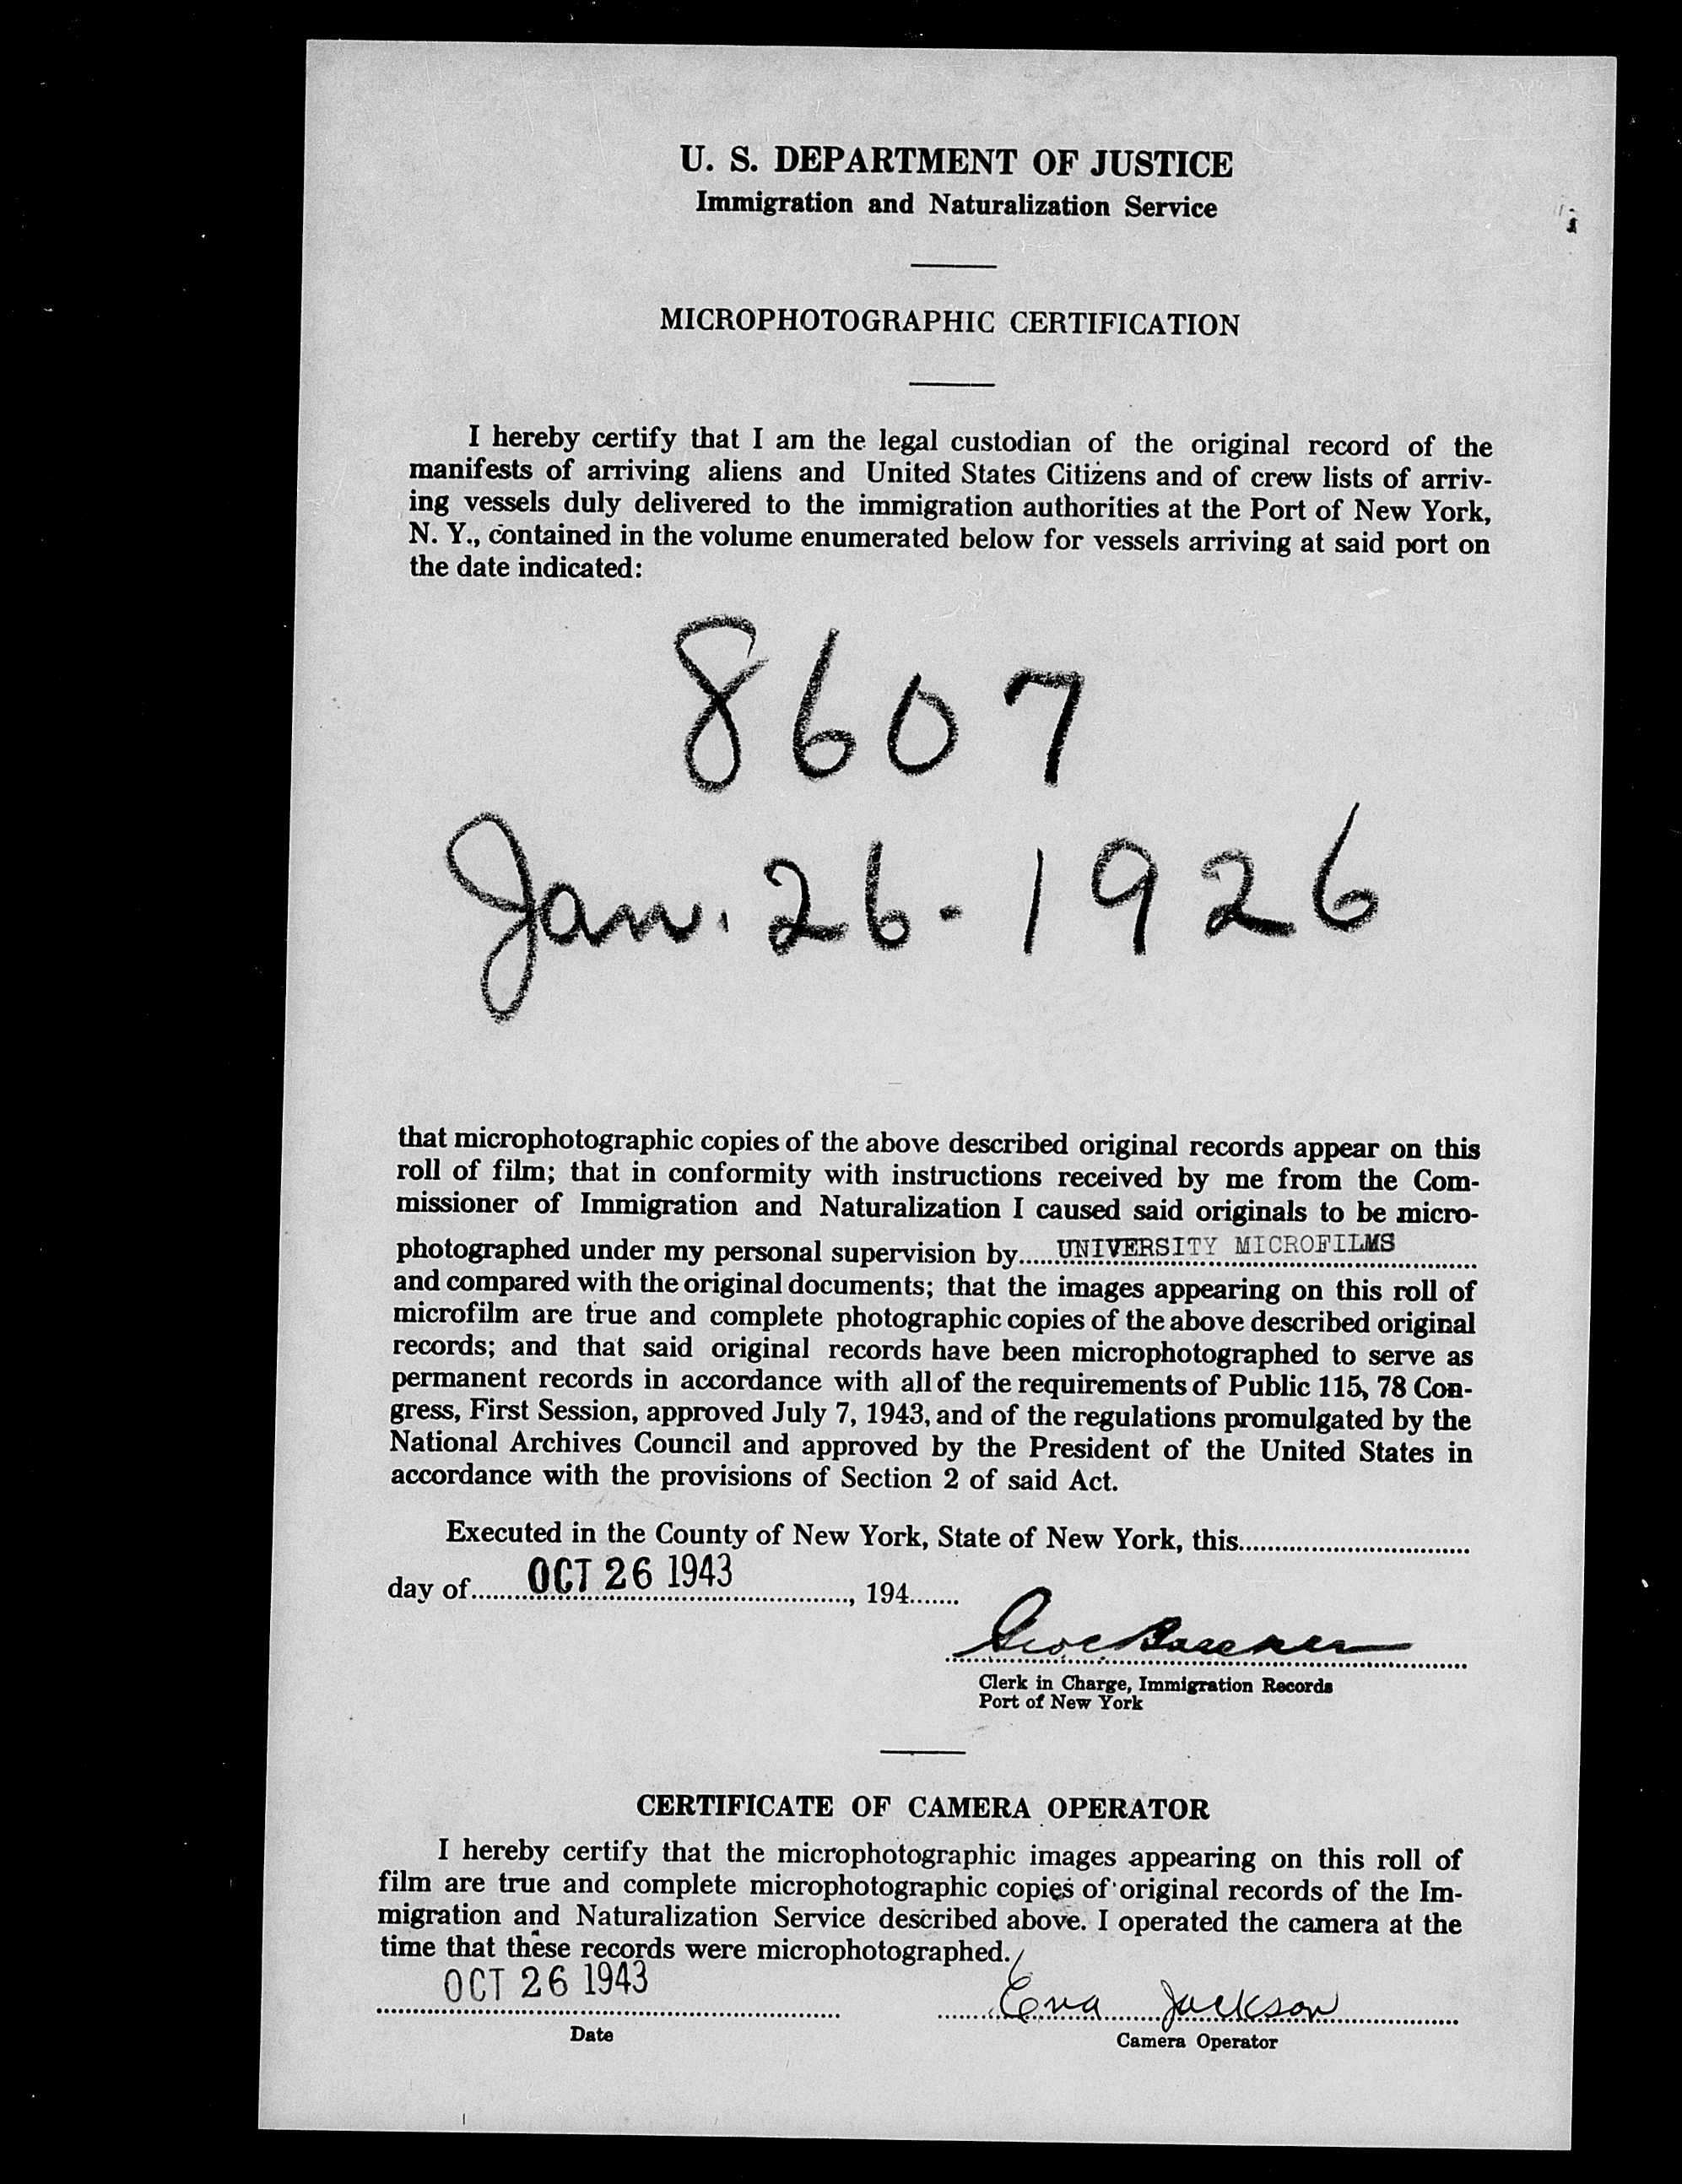 U. S. DEPARTMENT OF JUSTICE
Immigration and Naturalization Service
MICROPHOTOGRAPHIC CERTIFICATION
I hereby certify that I am the legal custodian of the original record of the
manifests of arriving aliens and United States Citizens and of crew lists of arriv-
ing vessels duly delivered to the immigration authorities at the Port of New York,
N. Y., contained in the volume enumerated below for vessels arriving at said port on
the date indicated:
8607
Jan. 26-1926
that microphotographic copies of the above described original records appear on this
roll of film; that in conformity with instructions received by me from the Com-
missioner of Immigration and Naturalization I caused said originals to be micro-
photographed under my personal supervision by.....UNIVERSITY MICROFILMS
and compared with the original documents; that the images appearing on this roll of
microfilm are true and complete photographic copies of the above described original
records; and that said original records have been microphotographed to serve as
permanent records in accordance with all of the requirements of Public 115, 78 Con-
gress, First Session, approved July 7, 1943, and of the regulations promulgated by the
National Archives Council and approved by the President of the United States in
accordance with the provisions of Section 2 of said Act.
Executed in the County of New York, State of New York, this..............................
day of.......OCT 26 1943.............., 194.......
Clerk in Charge, Immigration Records
Port of New York
CERTIFICATE OF CAMERA OPERATOR
I hereby certify that the microphotographic images appearing on this roll of
film are true and complete microphotographic copies of original records of the Im-
migration and Naturalization Service described above. I operated the camera at the
time that these records were microphotographed.
OCT 26 1943
Eva Jackson
Date
Camera Operator